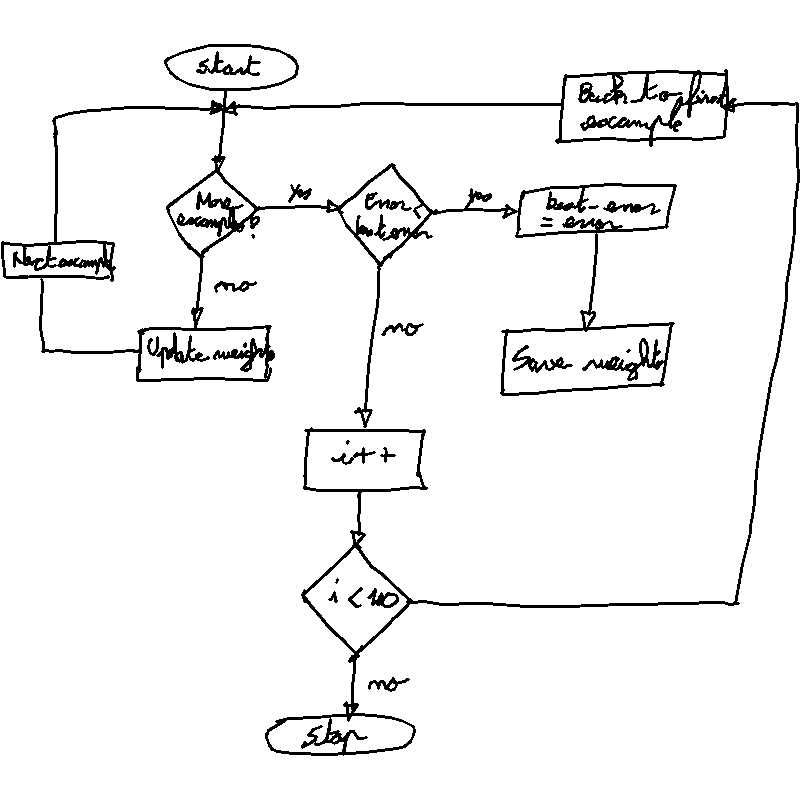 start
Back to first
example
More
examples?
Yes
Error <
best error
yes
best-error
= error
Next example
no
Update weights
no
Save weights
i++
i < 10
no
stop